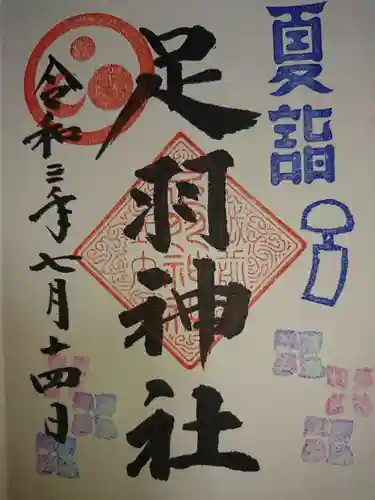 夏詣
足羽神社
令和三年七月十四日